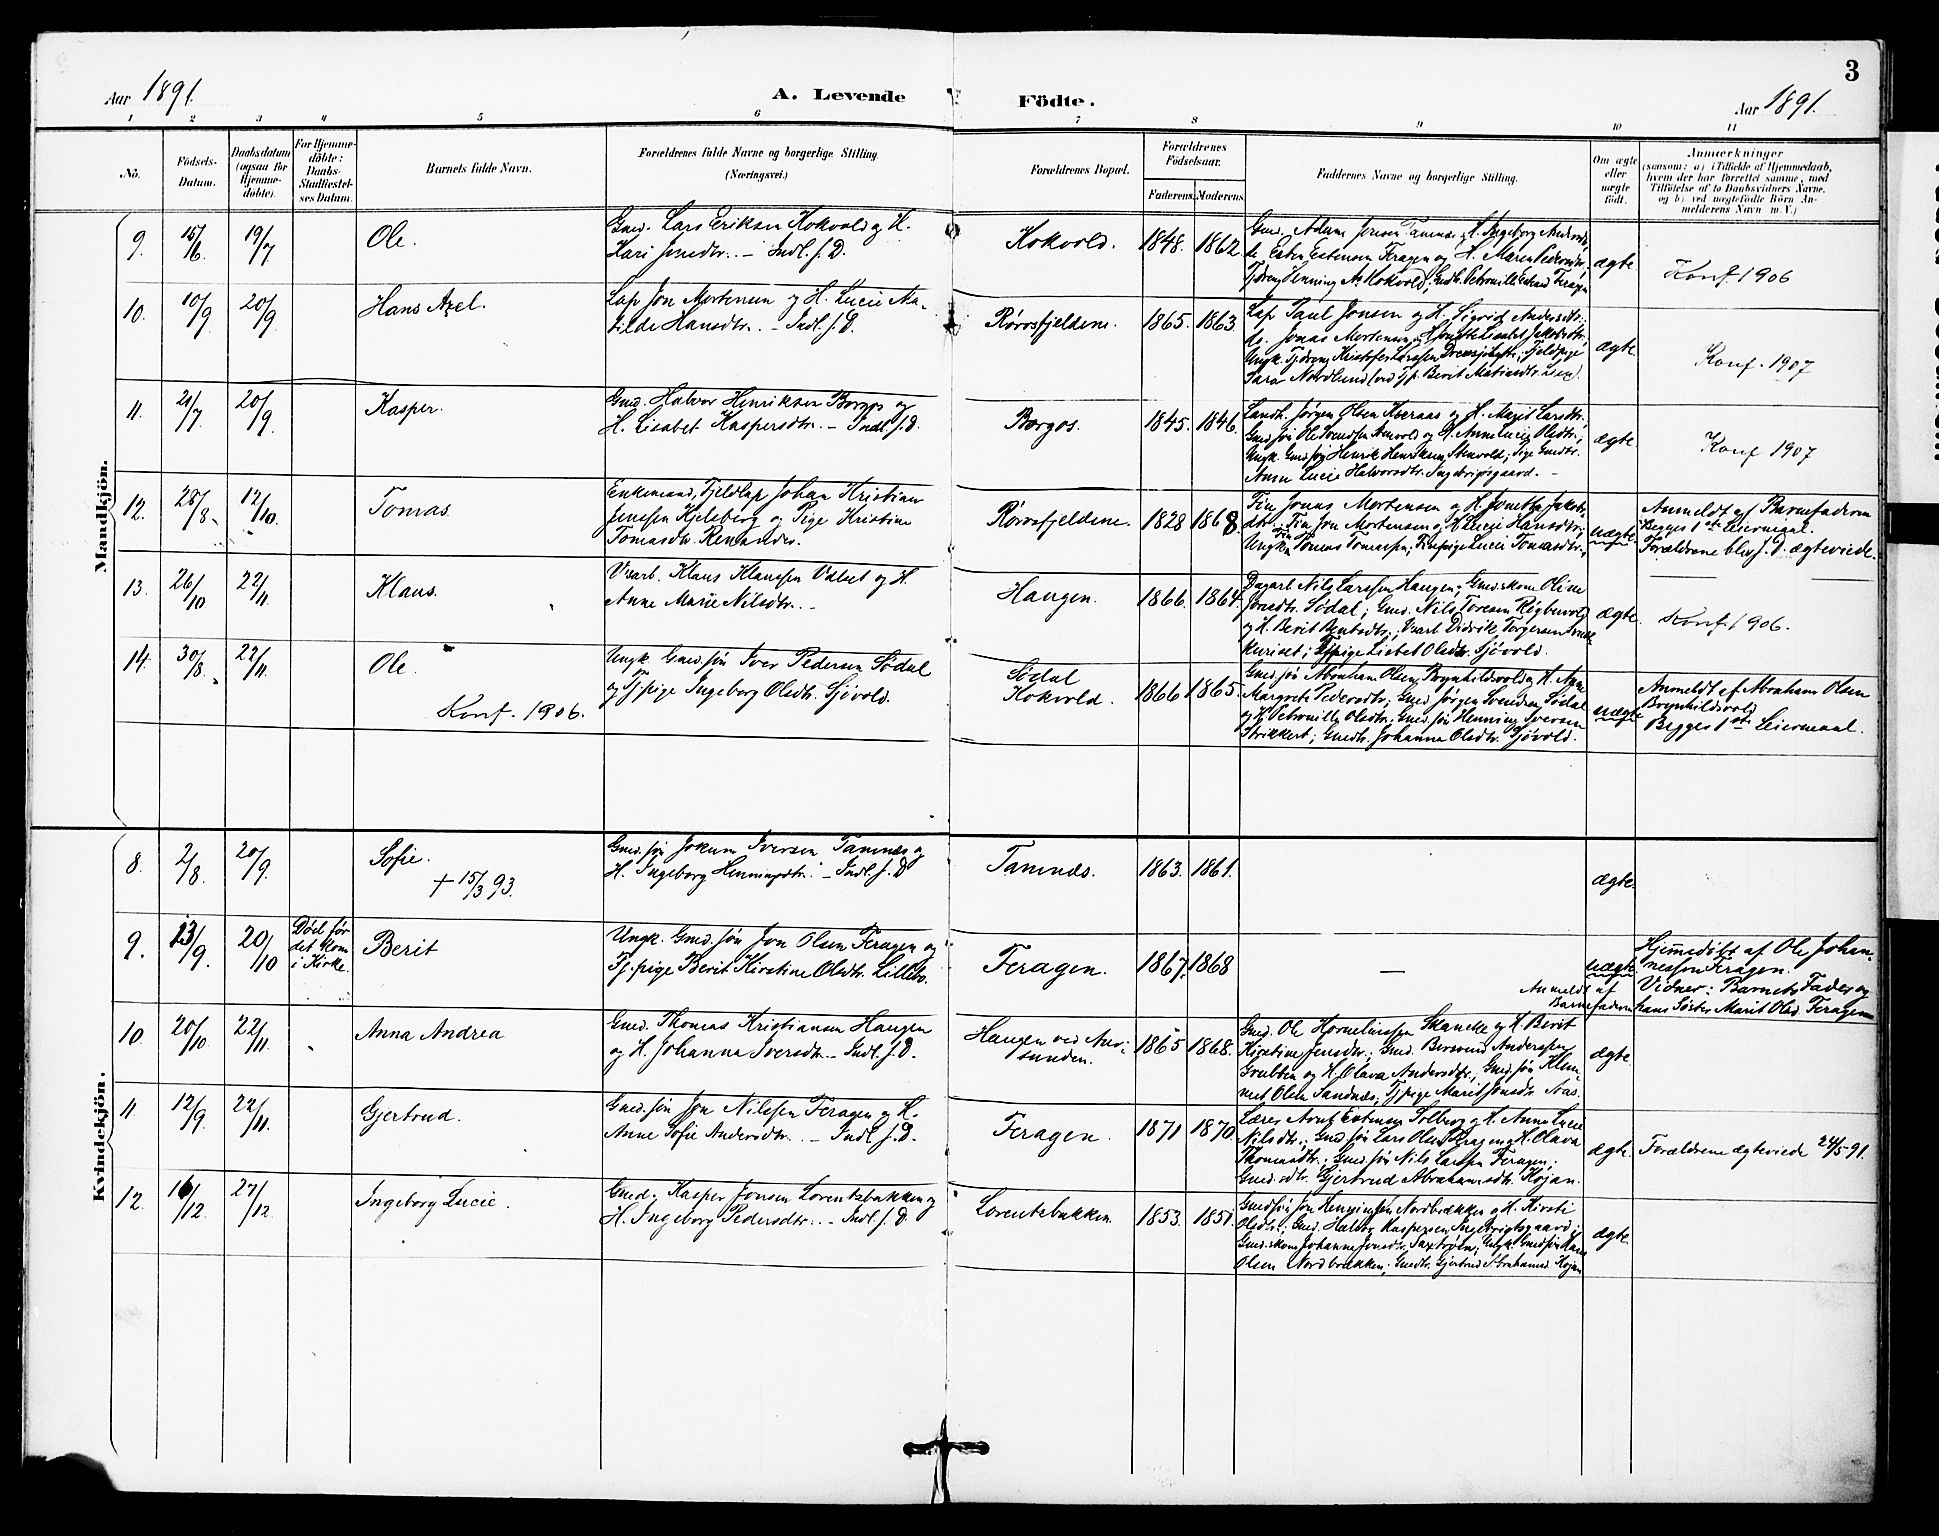 3
Aar 1891.
A. Levende Födte.
Aar 1891.
1 2 3 4 5 6 7 8 9 10 11
No.
Födsels-
Datum.
Daabsdatum
(ogsaa for
Hjemme-
døbte).
For Hjemme-
døbte:
Daabs-
Stadfæstel-
ses Datum.
Barnets fulde Navn.
Forældrenes fulde Navne og borgerlige Stilling
(Næringsvei.)
Forældrenes Bopæl.
Forældrenes
Födselsaar.
Faderens. Moderens.
Faddernes Navne og borgerlige Stilling.
Om ægte
eller
uægte
født.
Anmærkninger
(saasom: a) i Tilfælde af Hjemmedaab,
hvem der har forrettet samme, med
Tilföielse af to Daabsvidners Navne,
og b) ved uægtefødte Börn An-
melderens Navn m. V.)
Mandkjön.
9. 15/6 19/7
Ole.
Gmd. Lars Eriksen Kokvold og H.
Kari Jonsdtr. – Indl. f. D.
Kokvold.
1848. 1862.
de. Esten Estensen Feragen og H. Maren Pedersdtr.,
ægte
Konf. 1906
10. 10/9 20/9
Hans Axel.
Lap Jon Mortensen og H. Lucie Ma-
tilde Hansdtr. – Indl. f. D.
Rørosfjeldene.
1865. 1863.
Lap Paul Jonsen og H. Sigrid Andersdtr.;
de. Jonas Mortensen og H. Jonetta Lisabet Jakobsdtr.;
Sara Nordlund
ægte
Konf. 1907
11. 21/7 20/9
Kasper.
Gmd. Halvor Henriksen Borgos og
H. Lisabet Kaspersdtr. – Indl. f. D.
Borgos.
1845. 1846.
Landh. Jørgen Olsen Kveraas og H. Marit Larsdtr.
Gmd.søn Ole Svendsen Aasvold og H. Anne Lucie Olsdtr.;
Anne Lucie Halvorsdtr. Ingebrigtsgaard. –
ægte
Konf 1907
12. 28/8 12/10.
Tomas
Enkemand, Fjeldlap Johan Kristian
Jensen Kjelsberg og Pige Kristine
Tomasdtr. Renander.
Rørosfjeldene.
1828 1868.
Fin Jonas Mortensen og H. Jonetta Jakobs-
dtr.; Fin Jon Mortensen og H. Lucie Hansdtr.;
Ungk. Fin Tomas Tomassen; Finpige Lucie Tomasdtr.
uægte
Anmeldt af Barnefaderen
Begges 1ste Leiermaal.
Forældrene blev f. D. ægteviede.
13. 26/10 22/11.
Klaus.
Vsarb. Klaus Klausen Valset og H.
Anne Marie Nilsdtr. –
Haugen.
1866. 1864.
Dagarb. Nils Larssen Haugen; Gmd.skone Oline
Jonsdtr. Sødal; Gmd. Nils Toresen Rigbervold
og H. Berit Bentsdtr.; Vsarb. Didrik Torgersen
Tjpige Lisbet Olsdtr. Sjøvold.
ægte
Konf. 1906.
14. 30/8. 22/11.
Ole.
Konf. 1906.
Ungk. Gmd.søn Iver Pedersen Sødal
og Tj.pige Ingeborg Olsdtr. Sjøvold.
Sødal
Kokvold.
1866 1865.
Gmd.søn Abraham Olsen Brynhildsvold og H. Anne
Margrete Pedersdtr.; Gmd. Jørgen Svendsen Sødal
og H. Petronille Olsdtr.; Gmd.søn Henning Iversen
Strikkert; Gmdtr. Johanna Olsdtr. Sjøvold.
uægte
Anmeldt af Abraham Olsen
Brynhildsvold
Begges 1ste Leiermaal.
Kvindekjön.
8. 2/8. 20/9.
Sofie.
† 15/3 93.
Gmd.søn Jokum Iversen Tamnes og
H. Ingeborg Henningsdtr. – Indl. f. D
Tamnæs.
1863. 1861.
ægte.
9. 13/9. 20/10
Død før
det kom
i Kirke.
Berit
Ungk. Gmd.søn Jon Olsen Feragen og
Tj.pige Berit Kirstine Olsdtr. Lillebo.
Feragen.
1867. 1868
—
uægte
Anmeldt af
Barnefaderen
Hjemmedöbt af Ole Johan-
nessen Feragen.
Vidner: Barnets Fader og
hans Söster Marit Olsd. Feragen
10. 20/10 22/11.
Anna Andrea
Gmd. Thomas Kristiansen Haugen
og H. Johanna Iversdtr. – Indl. f. D.
Haugen ved Aur-
sunden.
1865 1868.
Gmd. Ole Korneliussen Skancke og H. Berit
Kirstine Jensdtr.; Gmd. Bersvend Andersen
Grubben og H. Olava Andersdtr.; Gmd.søn Klem-
met Olsen Sandnæs; Tj.pige Marit Jonsdtr. Aas.
ægte.
11 12/9. 22/11.
Gjertrud.
Gmd.søn Jon Nilssen Feragen og H.
Anne Sofie Andersdtr. – Indl. f. D.
Feragen.
1871 1870.
Lærer Arnt Estensen Solberg og H. Anne Lucie
Nilsdtr.; Gmd.søn Lars Olsen Feragen og H. Olava
Thomasdtr.; Gmd.søn Nils Larssen Feragen;
Gmd.sdtr. Gjertrud Abrahamsdtr. Kojan.
ægte.
Forældrene ægteviede 24/5 91.
12. 16/12. 27/12.
Ingeborg Lucie.
Gmd. Kasper Jonsen Lorentzbakken og
H. Ingeborg Pedersdtr. – Indl. f. D.
Lorentzbakken
1853. 1851.
Gmd.søn Jon Henningsen Nordbrækken og H. Kirsti
Olsdtr.; Gmd. Halvor Kaspersen Ingebrigtsgaard;
Olsen Nordbrækken; Gmdtr. Gjertrud Abrahamsd. Kojan
ægte.